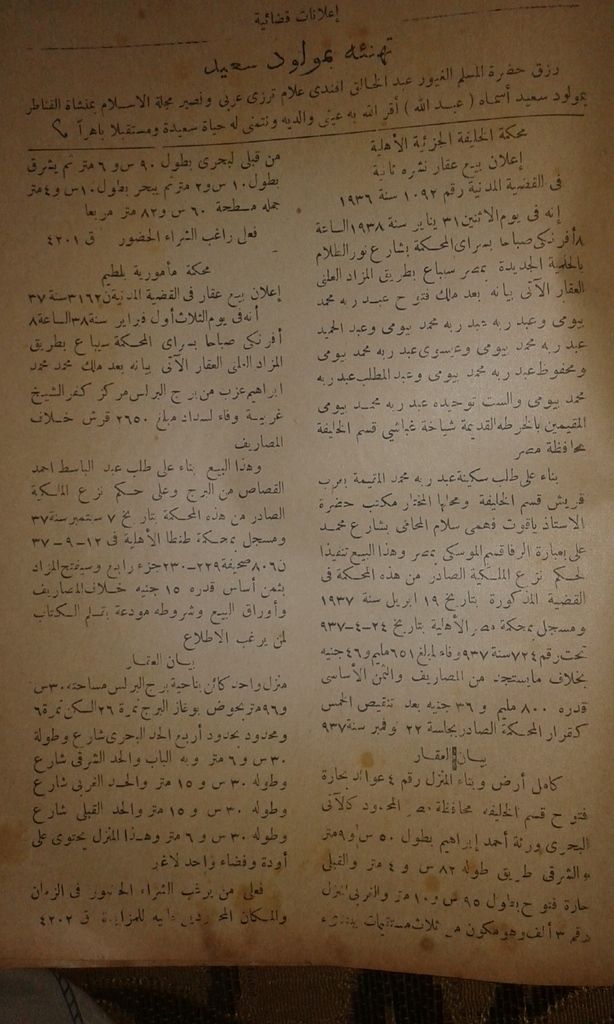 إعلانات قضائية
تهنئه بمولود سعيد
رزق حضرة المسلم الغيور عبد الخالق افندى علام ترزى عربى ونصير مجلة الاسلام بمنشاة القناطر
بمولود سعيد أسماه ( عبد الله ) أقر الله به عينى والديه ونتمنى له حياة سعيدة ومستقبلا باهراً
محكمة الخليفة الجزئية الأهلية
إعلان بيع عقار نشره ثانية
فى القضية المدنية رقم ١٠٩٢ سنة ١٩٣٦
إنه فى يوم الاثنين ٣١ يناير سنة ١٩٣٨ الساعة
٨ أفرنكى صباحا بسراى المحكمة بشارع نور الظلام
بالحلمية الجديدة بمصر سيباع بطريق المزاد العلنى
العقار الآتى بيانه بعد ملك فتوح عبد ربه محمد
بيومى وعبد ربه عبد ربه محمد بيومى وعبد الحميد
عبد ربه محمد بيومى وعيسوى عبد ربه محمد بيومى
ومحفوظ عبد ربه محمد بيومى وعبد المطلب عبد ربه
محمد بيومى والست توحيده عبد ربه محمد بيومى
المقيمين بالخرطه القديمة شياخة غباشى قسم الخليفة
محافظة مصر
بناء على طلب سكينة عبد ربه محمد المقيمة بعرب
قريش قسم الخليفة ومحلها المختار مكتب حضرة
الاستاذ ياقوت فهمى سلام المحامى بشارع محمد
على بعبارة الرفا قسم الموسكى بمصر وهذا البيع تنفيذا
لحكم نزع الملكية الصادر من هذه المحكمة فى
القضية المذكورة بتاريخ ١٩ ابريل سنة ١٩٣٧
ومسجل بمحكمة مصر الأهلية بتاريخ ٢٤-٤-٩٣٧
تحت رقم ٧٢٤ سنة ٩٣٧ وفاء لمبلغ ٦٥١ مليم و ٤٦ جنيه
بخلاف ما يستجد من المصاريف والثمن الأساسى
قدره ٨٠٠ مليم و ٣٦ جنيه بعد تنقيص الخمس
كقرار المحكمة الصادر بجلسة ٢٢ نوفمبر سنة ٩٣٧
بيان العقار
كامل أرض وبناء المنزل رقم ٤ عوائد بحارة
فتوح قسم الخليفه محافظة مصر المحدود كالآتى
البحرى ورثة أحمد إبراهيم بطول ٥٠ س و ٩ متر
والشرقى طريق طوله ٨٢ س و ٤ متر والقبلى
حارة فتوح بطول ٩٥ س و ١٠ متر والغربى المنزل
رقم ٣ ألف وهو مكون من ثلاث مستقيمات
من قبلى لبحرى بطول ٩٠ س و ٦ متر ثم يشرق
بطول ١٠ س و ٢ متر ثم يبحر بطول ١٠ س و ٤ متر
جمله مسطحة ٦٠ س و ٨٢ متر مربعا
فعلى راغب الشراء الحضور ق ٤٢٠١
محكمة مأمورية بلطيم
إعلان بيع عقار فى القضية المدنية ن ٣١٦٢ سنة ٣٧
أنه فى يوم الثلاث أول فبراير سنة ٣٨ الساعة ٨
أفرنكى صباحا بسراى المحكمة سيباع بطريق
المزاد العلنى العقار الآتى بيانه بعد ملك محمد محمد
ابراهيم عزب من برج البرلس مركز كفر الشيخ
غربية وفاء لسداد مبلغ ٢٦٥٠ قرش خلاف
المصاريف
وهذا البيع بناء على طلب عبد الباسط احمد
القصاص من البرج وعلى حكم نزع الملكية
الصادر من هذه المحكمة بتاريخ ٧ سبتمبر سنة ٣٧
ومسجل بمحكمة طنطا الأهلية فى ١٢-٩-٣٧
ن ٨٠٦ صحيفة ٢٢٩-٢٣٠ جزء رابع وسيفتح المزاد
بثمن أساسى قدره ١٥ جنيه خلاف المصاريف
وأوراق البيع وشروطه مودعة بقلم الكتاب
لمن يرغب الاطلاع
بيان العقار
منزل واحد كائن بناحية برج البرلس مساحته ٣٠ س
و ٩٦ متر بحوض بوغاز البرج نمرة ٢٦ السكن نمرة ٦
ومحدود بحدود أربع الحد البحرى شارع وطولة
٣٠ س و ٦ متر وبه الباب والحد الشرقى شارع
وطوله ٣٠ س و ١٥ متر والحد الغربى شارع
وطوله ٣٠ س و ١٥ متر والحد القبلى شارع
وطوله ٣٠ س و ٦ متر وهذا المنزل يحتوى على
أودة وفضاء واحد لاغير
فعلى من يرغب الشراء الحضور فى الزمان
والمكان المحددين عاليه للمزايدة ق ٤٢٠٢